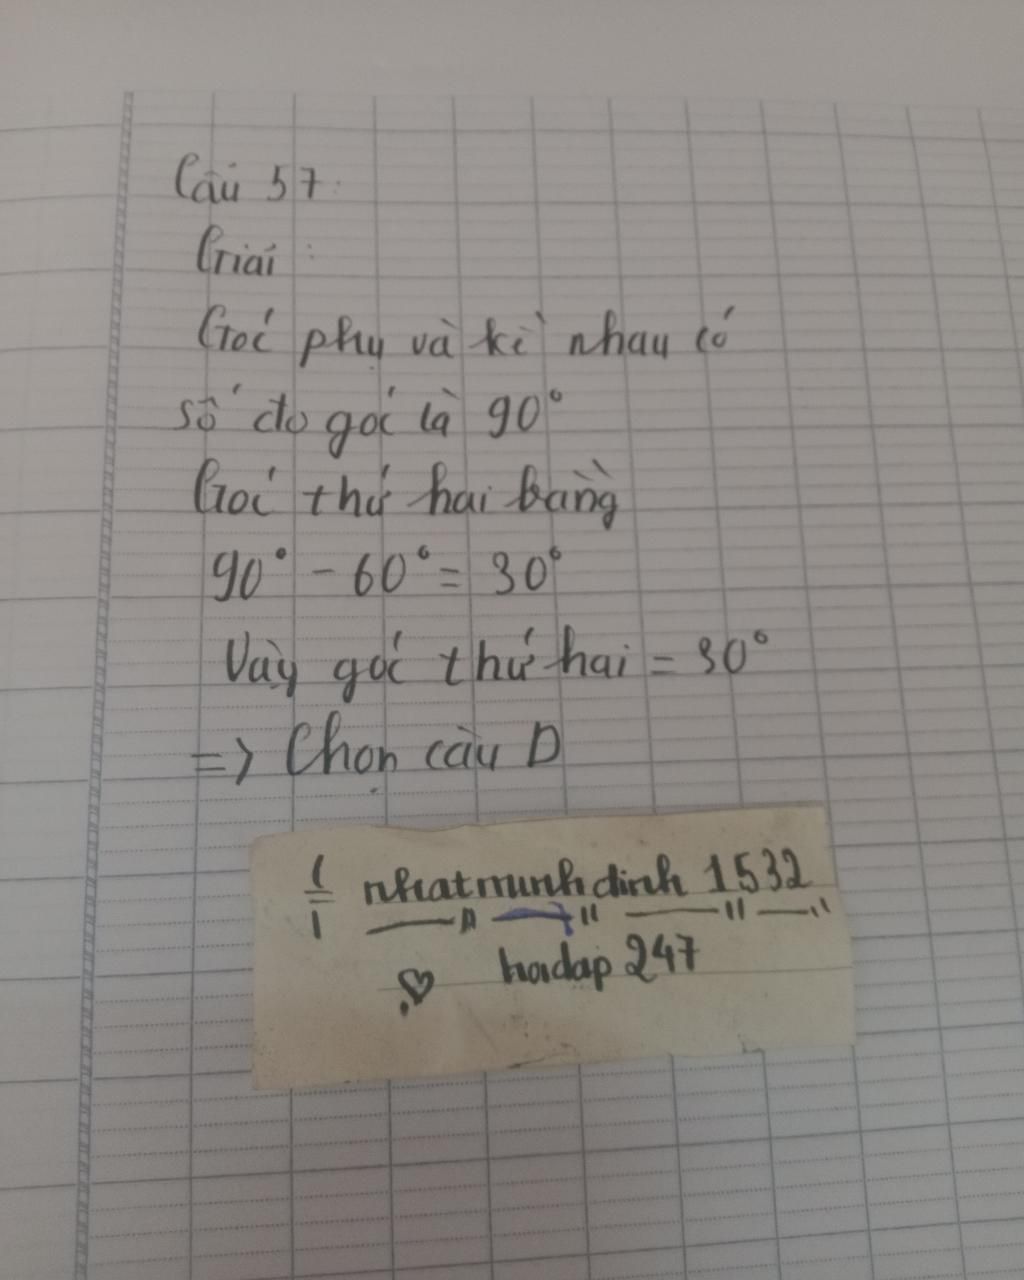 Câu 57:
Giải:
Góc phụ và kề nhau có
số đo góc là 90°
Góc thứ hai bằng
90° - 60° = 30°
Vậy góc thứ hai = 30°
=> Chọn câu D
nhatminhdinh 1532
hoidap 247